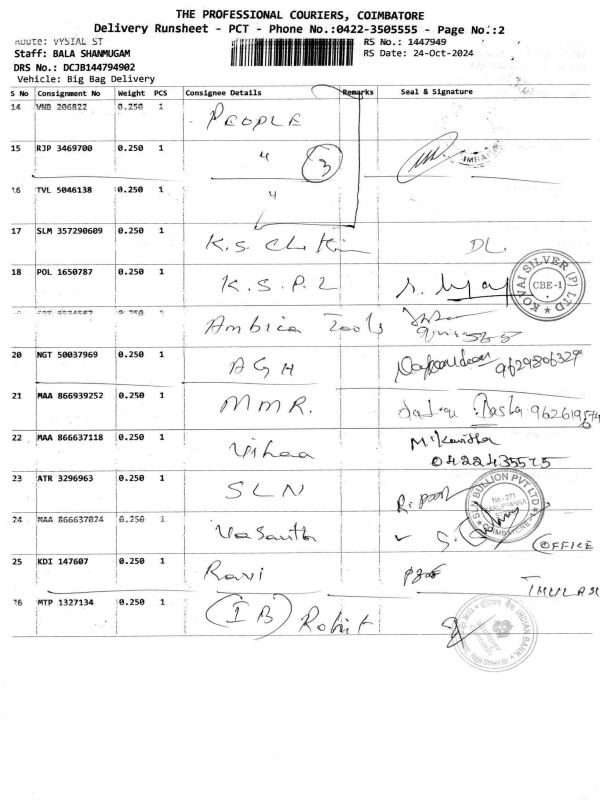 THE PROFESSIONAL COURIERS, COIMBATORE
Delivery Runsheet - PCT - Phone No.:0422-3505555 - Page No.:2
Route: VYSIAL ST
RS No.: 1447949
Staff: BALA SHANMUGAM
RS Date: 24-Oct-2024
DRS No.: DCJB144794902
Vehicle: Big Bag Delivery
S No Consignment No Weight PCS Consignee Details Remarks Seal & Signature
14 VNB 206822 0.250 1 PEOPLE
15 RJP 3469700 0.250 1 " 3
16 TVL 5046138 0.250 1 "
17 SLM 357290609 0.250 1 K.S. DL.
18 POL 1650787 0.250 1 K.S.P.2
KOVAI SILVER (P) LTD
CBE-1
0.250 1 Ambica Tools
20 NGT 50037969 0.250 1 AGH 9629806329
21 MAA 866939252 0.250 1 MMR. Basha
22 MAA 866637118 0.250 1 Vihaa M. Kavitha
04224355 75
23 ATR 3296963 0.250 1 SLN
SLN BULLION PVT LTD
No-271
COIMBATORE
24 MAA 866637024 0.250 1 Vasanth S. OFFICE
25 KDI 147607 0.250 1 Ravi
26 MTP 1327134 0.250 1 (IB) Rohit
INDIAN BANK